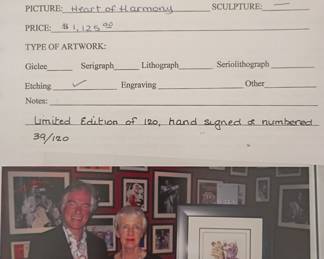 PICTURE: Heart of Harmony SCULPTURE: —
PRICE: $1,125 00
TYPE OF ARTWORK:
Giclee Serigraph Lithograph Seriolithograph
Etching ✓ Engraving Other
Notes:
Limited Edition of 120, hand signed & numbered
39/120